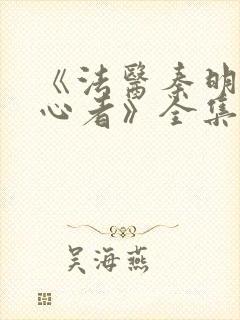 《法醫秦明
心者》全集
吴海燕